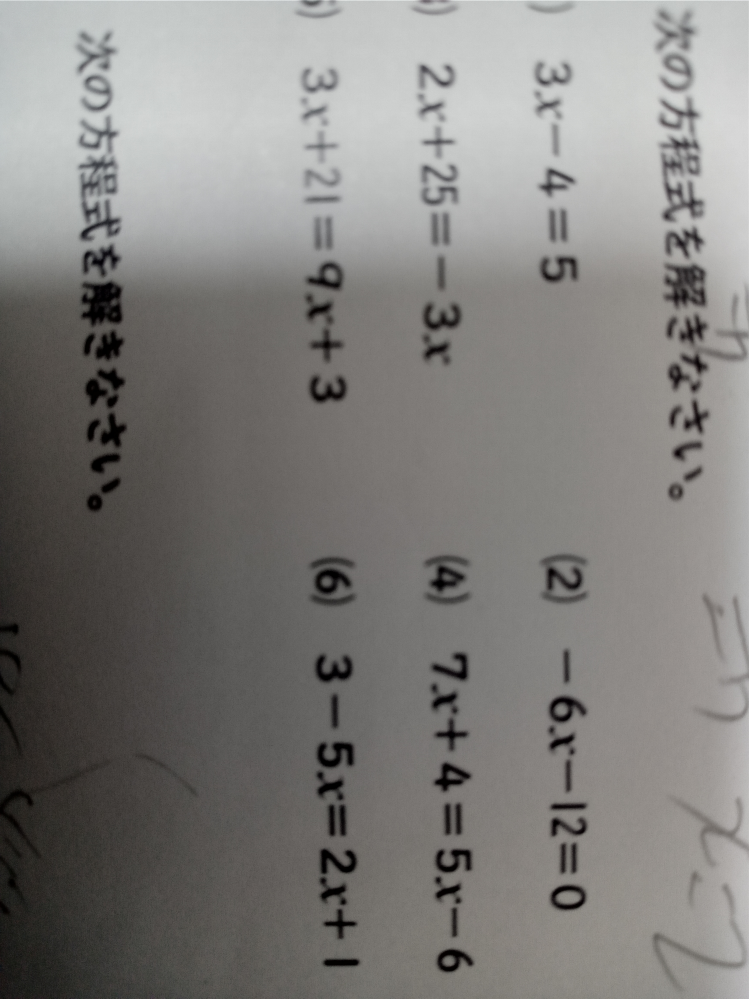 次の方程式を解きなさい。
) 3x-4=5 (2) -6x-12=0
) 2x+25=-3x (4) 7x+4=5x-6
) 3x+21=9x+3 (6) 3-5x=2x+1
次の方程式を解きなさい。